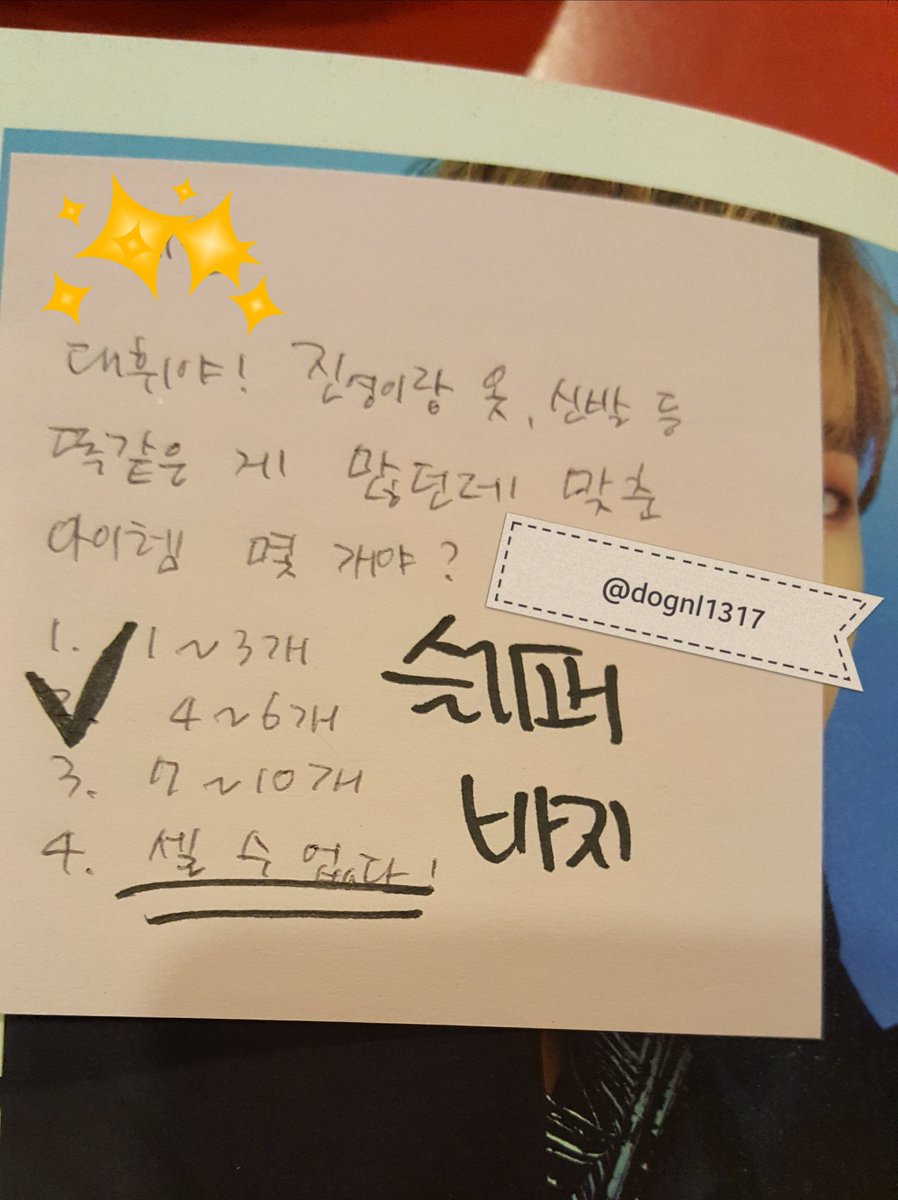 대휘야! 진영이랑 옷, 신발 등
똑같은 게 많던데 맞춘
아이템 몇 개야?
@dognl1317
1. 1~3개
2. 4~6개
3. 7~10개
4. 셀 수 없다!
슬리퍼
바지